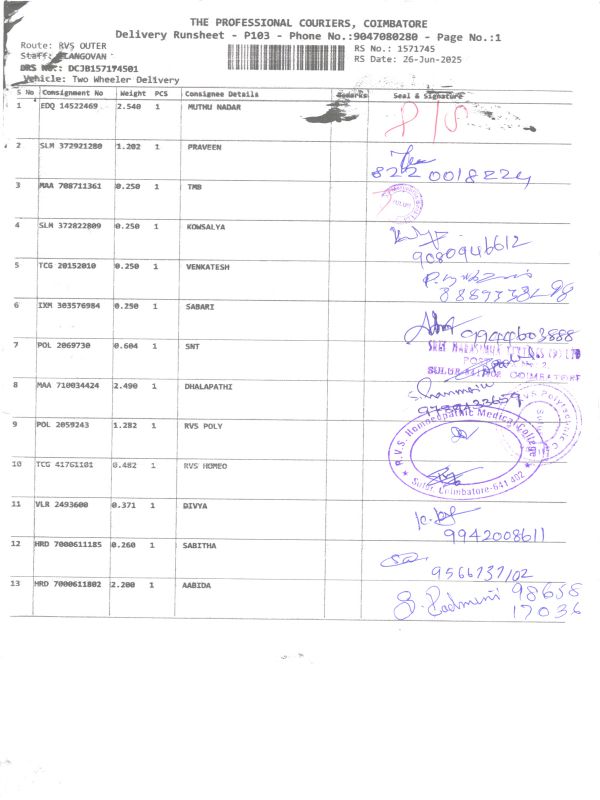 THE PROFESSIONAL COURIERS, COIMBATORE
Delivery Runsheet - P103 - Phone No.:9047080280 - Page No.:1
Route: RVS OUTER
RS No.: 1571745
Staff: ELANGOVAN
RS Date: 26-Jun-2025
DRS No.: DCJB157174501
Vehicle: Two Wheeler Delivery
S No Consignment No Weight PCS Consignee Details Remarks Seal & Signature
1 EDQ 14522469 2.540 1 MUTHU NADAR
2 SLM 372921280 1.202 1 PRAVEEN
8220018224
3 MAA 708711361 0.250 1 TMB
4 SLM 372822809 0.250 1 KOWSALYA
9080946612
5 TCG 20152010 0.250 1 VENKATESH
6 IXM 303576984 0.250 1 SABARI
9944603888
7 POL 2069730 0.604 1 SNT
8 MAA 710034424 2.490 1 DHALAPATHI
9 POL 2059243 1.282 1 RVS POLY
R.V.S. Homoeopathic Medical College
10 TCG 41761101 0.482 1 RVS HOMEO
Sulur Coimbatore-641 402
11 VLR 2493600 0.371 1 DIVYA
9942008611
12 HRD 7000611185 0.260 1 SABITHA
9566737102
13 HRD 7000611802 2.200 1 AABIDA
98658
17036